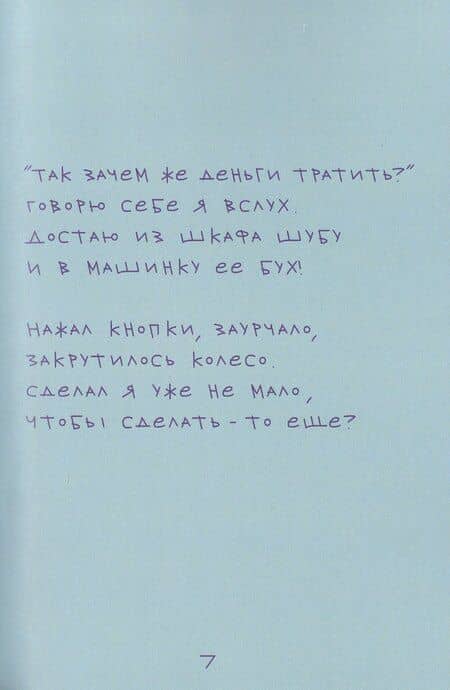 "Так зачем же деньги тратить?"
Говорю себе я вслух.
Достаю из шкафа шубу
и в машинку ее бух!
Нажал кнопки, заурчало,
закрутилось колесо.
Сделал я уже не мало,
чтобы сделать-то еще?
7